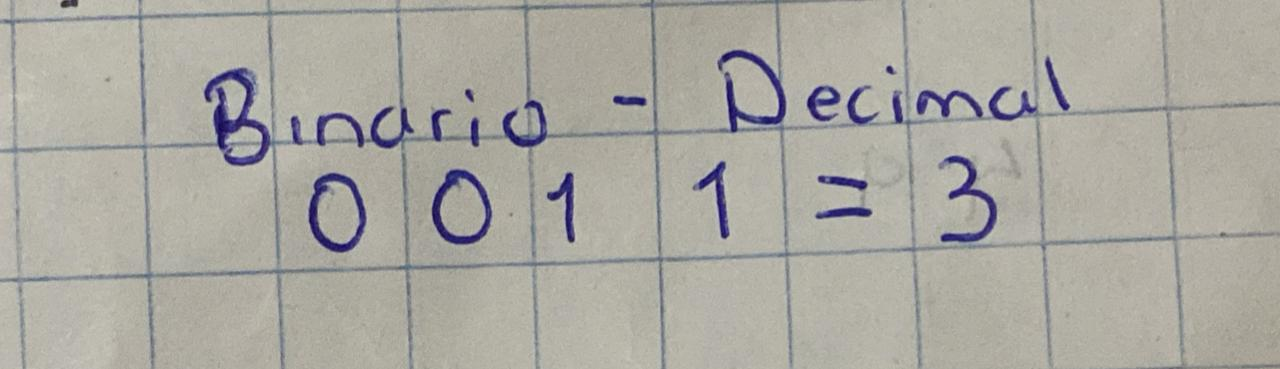 Binario - Decimal
0 0 1 1 = 3